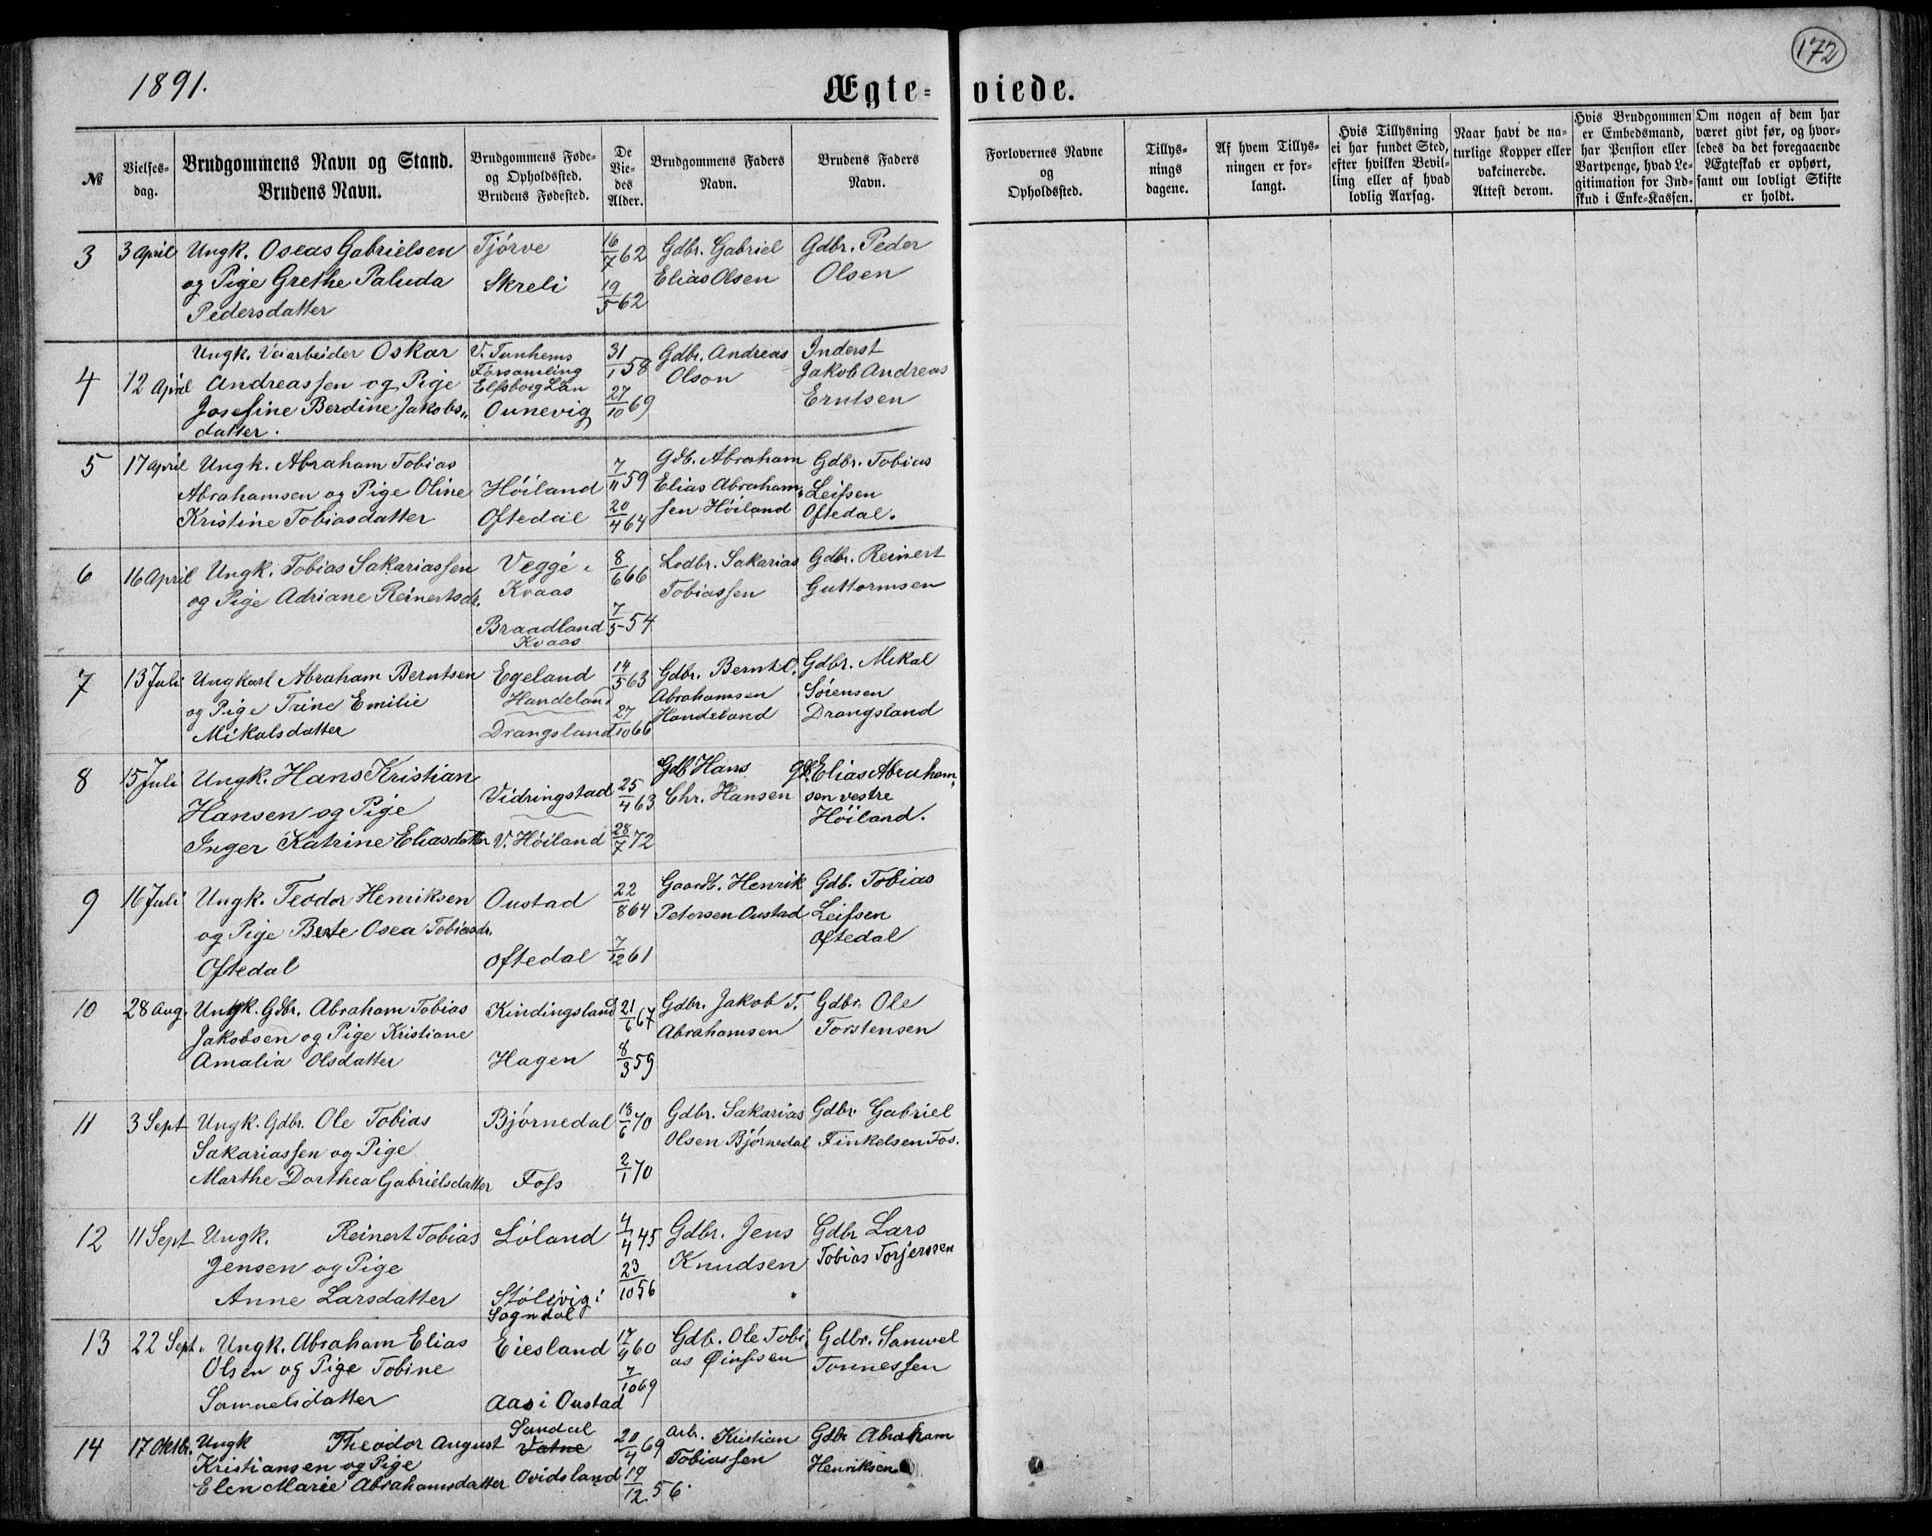 172
1891.
Ægte- viede.
№
Vielses-
dag.
Brudgommens Navn og Stand.
Brudens Navn.
Brudgommens Føde-
og Opholdssted.
Brudens Fødested.
De
Vie-
des
Alder.
Brudgommens Faders
Navn.
Brudens Faders
Navn.
Forlovernes Navne
og
Opholdssted.
Tillys-
nings
dagene.
Af hvem Tillys-
ningen er for-
langt.
Hvis Tillysning
ei har fundet Sted,
efter hvilken Bevil-
ling eller af hvad
lovlig Aarsag.
Naar havt de na-
turlige Kopper eller
vakcinerede.
Attest derom.
Hvis Brudgommen
er Embedsmand,
har Pension eller
Vartpenge, hvad Le-
gitimation for Ind-
skud i Enke-Kassen.
Om nogen af dem har
været givt før, og hvor-
ledes da det foregaaende
Ægteskab er ophørt,
samt om lovligt Skifte
er holdt.
3 3 April Ungk. Oseas Gabrielsen Tjørve 16/7 62 Gdbr. Gabriel Gdbr. Peder
og Pige Grethe Paluda Skreli 19/5 62 Elias Olsen Olsen
Pedersdatter
4 12 April Ungk. Veiarbeider Oskar V. Tunhems 31/1 58 Gdbr. Andreas Inderst
Andreassen og Pige Forsamling Olson Jakob Andreas
Josefine Berdine Jakobs„ Elfsborg Län 27/10 69 Erntsen
datter. Ounevig
5 17 April Ungk. Abraham Tobias 7/11 59 Gdb. Abraham Gdbr. Tobias
Abrahamsen og Pige Oline Høiland Elias Abraham„ Leifsen
Kristine Tobiasdatter Oftedal 20/4 64 sen Høiland Oftedal.
6 16 April Ungk. Tobias Sakariassen Vegge i 8/6 66 Lodbr. Sakarias Gdbr. Reinert
og Pige Adriane Reinertsdr. Kvaas Tobiassen Guttormsen
Braadland 7/5 54
Kvaas
7 13 Juli Ungkarl Abraham Berntsen Egeland 14/5 63 Gdbr. Bernt Gdbr. Mikal
og Pige Trine Emilie Handeland Abrahamsen Sørensen
Mikalsdatter Drangsland 27/10 66 Handeland Drangsland
8 15 Juli Ungk. Hans Kristian Vidringstad 25/4 63 Gdb Hans Gdb. Elias Abraham„
Hansen og Pige Chr. Hansen sen vestre
Inger Katrine Eliasdatter V. Høiland 28/7 72 Høiland.
9 16 Juli Ungk. Teodor Henriksen Oustad 22/8 64 Gaardb. Henrik Gdb. Tobias
og Pige Berte Osea Tobiasdr. Petersen Oustad Leifsen
Oftedal Oftedal 7/12 61 Oftedal
10 28 Aug. Ungk. Gdbr. Abraham Tobias Kindingsland 21/6 67 Gdbr. Jakob T. Gdbr. Ole
Jakobsen og Pige Kristiane Abrahamsen Torstensen
Amalia Olsdatter Hagen 8/3 59
11 3 Sept Ungk. Gdbr. Ole Tobias Bjørnedal 18/6 70 Gdbr. Sakarias Gdbr. Gabriel
Sakariassen og Pige Olsen Bjørnedal Finkelsen Fos.
Marthe Dorthea Gabrielsdatter Foss 2/1 70
12 11 Sept Ungk. Reinert Tobias Løland 4/4 45 Gdbr. Jens Gdbr Lars
Jensen og Pige Knudsen Tobias Torjersen
Anne Larsdatter Stølsvig i 23/10 56
Sogndal
13 22 Sept. Ungk. Abraham Elias Eiesland 17/4 60 Gdb. Ole Tobi Gdbr. Samuel
Olsen og Pige Tobine as Øinssen Tønnessen
Samuelsdatter Aas i Oustad 7/10 69
14 17 Oktbr. Ungk Theodor August Sandal 20/4 69 Arb. Kristian Gdbr Abraham
Kristiansen og Pige Vatne Tobiassen Henriksen
Elen Marie Abrahamsdatter Ovidsland 19/12 56.